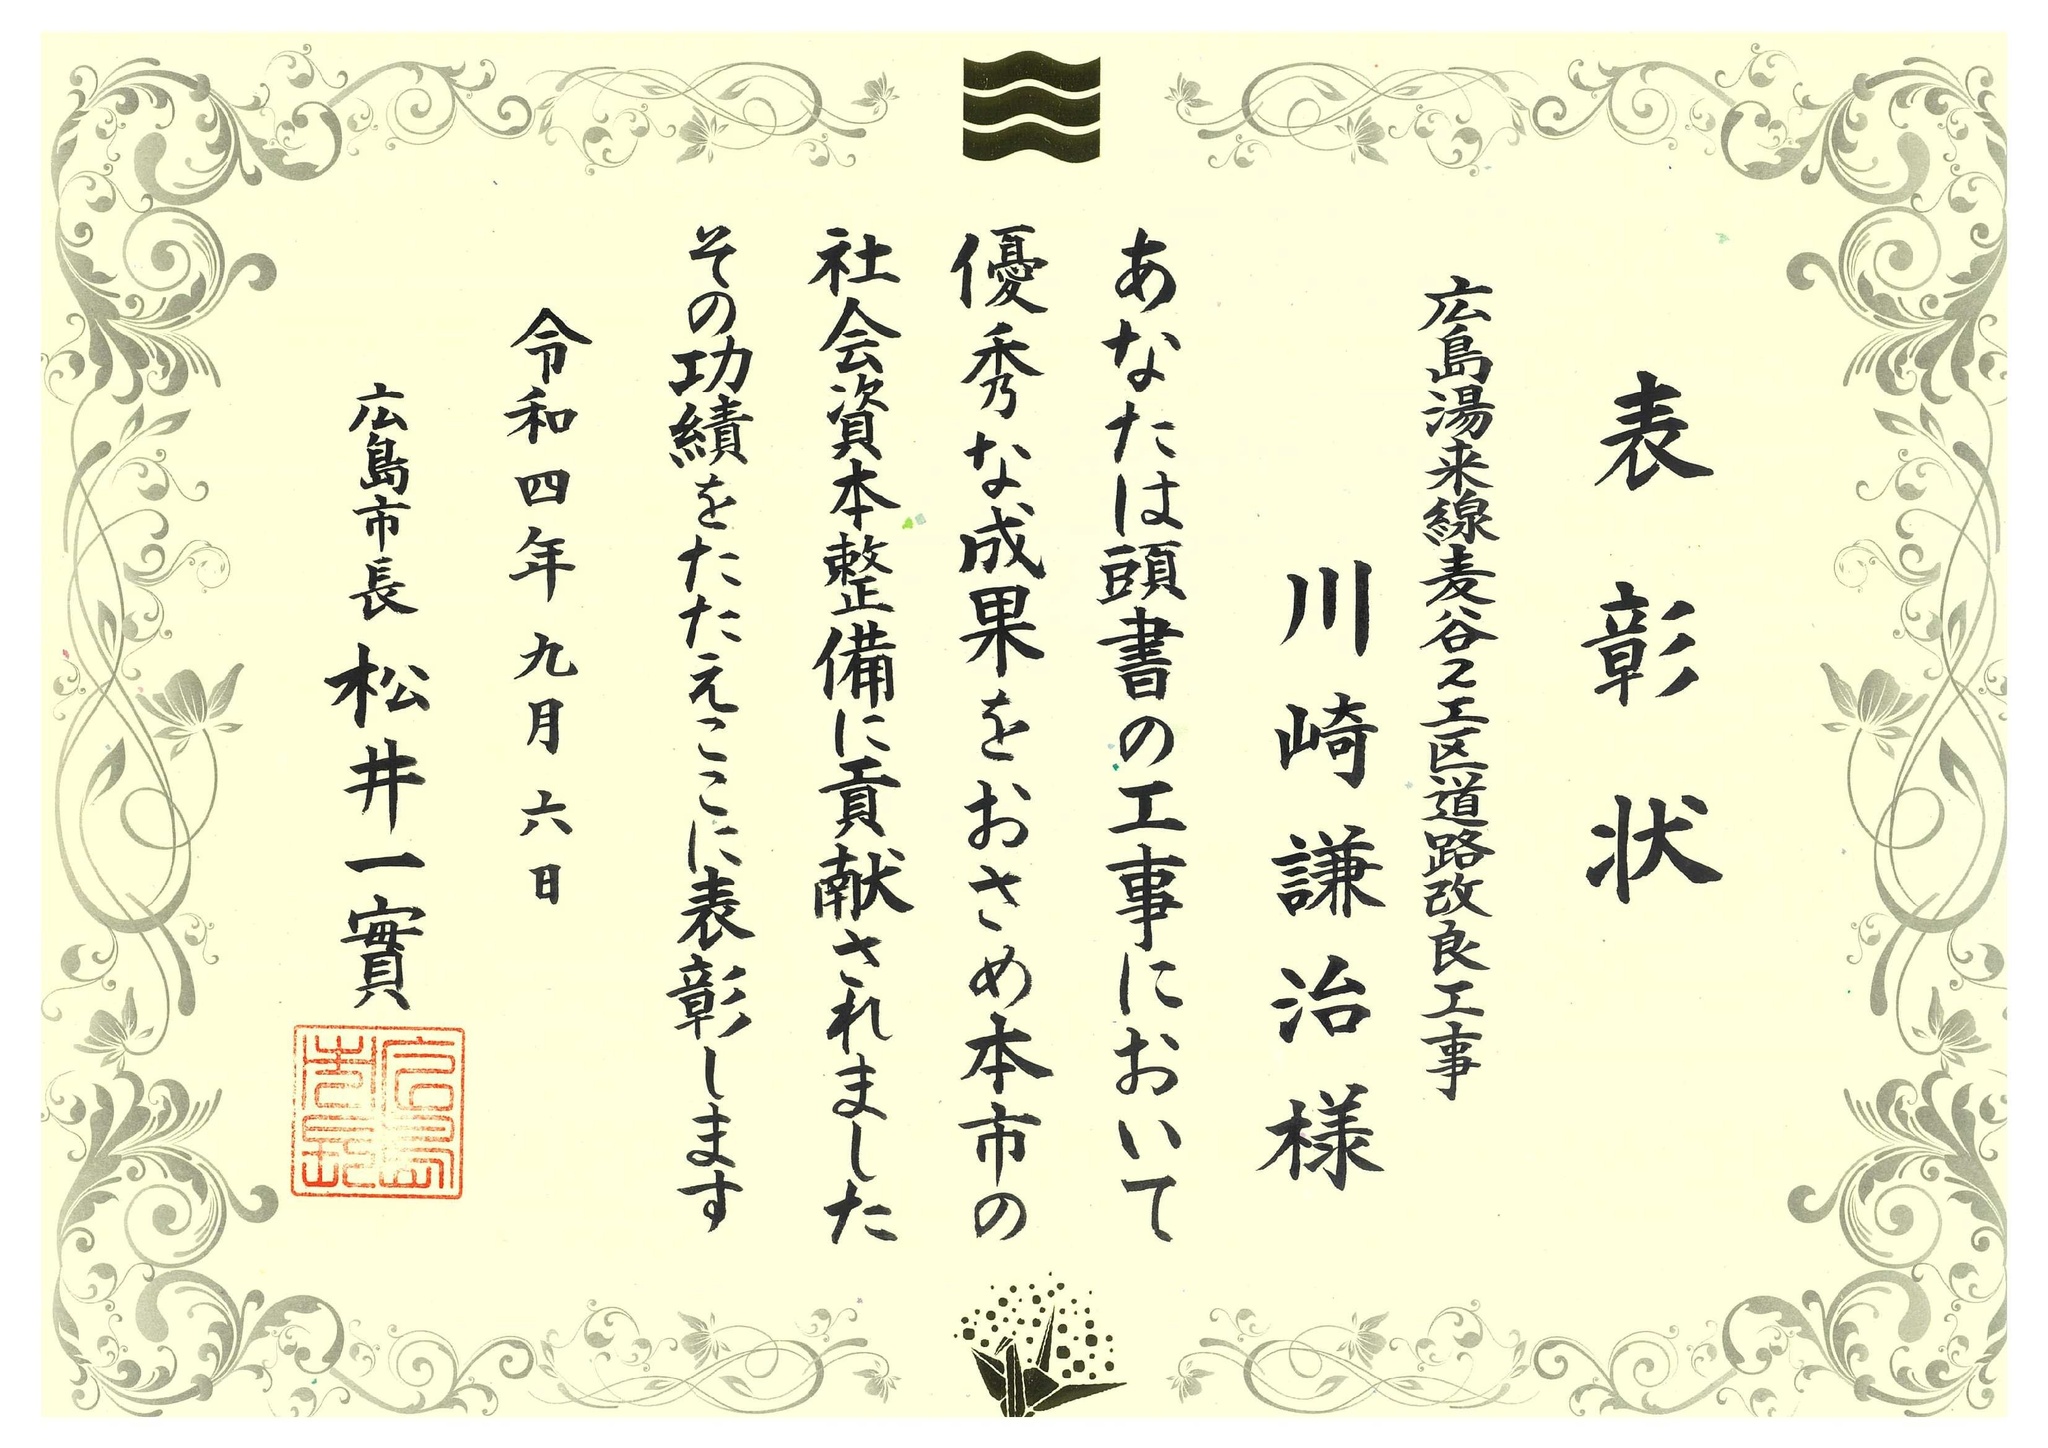 表彰状
広島湯来線麦谷2工区道路改良工事
川崎謙治様
あなたは頭書の工事において
優秀な成果をおさめ本市の
社会資本整備に貢献されました
その功績をたたえここに表彰します
令和四年九月六日
広島市長 松井一實
広島市長